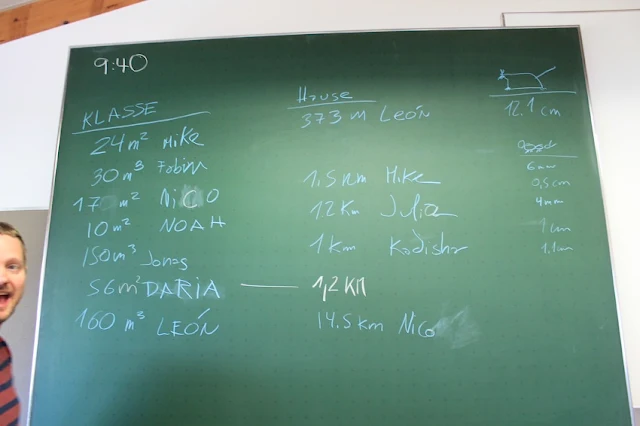 9:40
KLASSE
24 m² Mike
30 m³ Fabian
170 m² Nico
10 m² NOAH
150 m³ Jonas
56 m² DARIA — 1,2 KM
160 m³ LEÓN
Hause
373 m León
1,5 km Mike
12 Km Julia
1 km Kadisha
14.5 km Nico
12.1 cm
6 mm
0,5 cm
4 mm
1 cm
1.1 cm